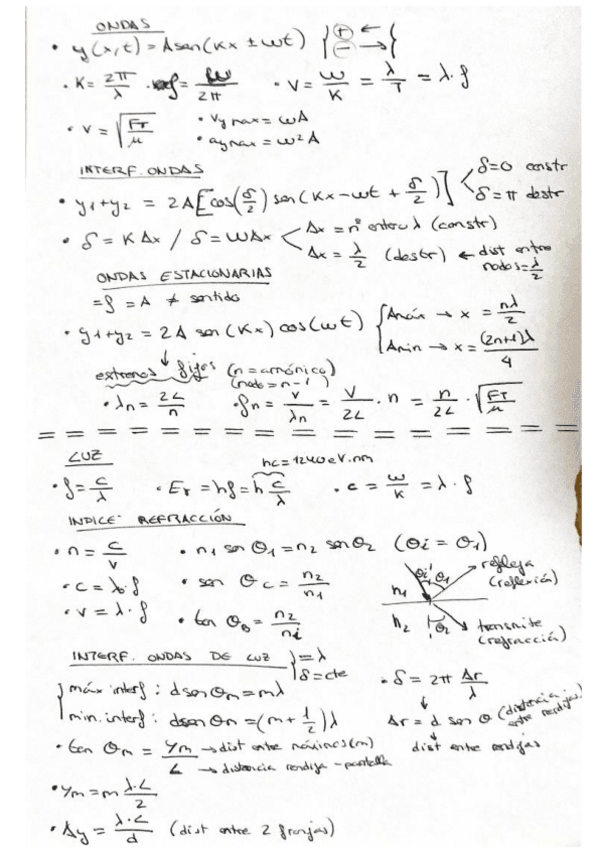 ONDAS
• y(x,t) = A sen(Kx ± ωt) { + ← / − → }
• K = 2π/λ • f = ω/2π • V = ω/K = λ/T = λ·f
• V = √(FT/μ) • Vy max = ωA
• ay max = ω²A
INTERF. ONDAS
• y1+y2 = 2A[cos(δ/2) sen(Kx−ωt + δ/2)] < δ=0 constr / δ=π destr
• δ = KΔx / δ = WΔx < Δx = nº entero λ (constr)
Δx = λ/2 (destr) ← dist entre nodos = λ/2
ONDAS ESTACIONARIAS
= f = A ≠ sentido
• y1+y2 = 2A sen(Kx) cos(ωt) { Amáx → x = nλ/2
Amin → x = (2n+1)λ/4
↓
extremos fijos (n = armónico)
(nodo = n−1)
• λn = 2L/n • fn = V/λn = V/2L · n = n/2L · √(FT/μ)
LUZ
hc = 1240 eV·nm
• f = c/λ • Er = hf = h c/λ • c = ω/K = λ·f
INDICE REFRACCIÓN
• n = c/v • n1 sen θ1 = n2 sen θ2 (θi = θ1)
• c = λ0·f • sen θc = n2/n1
• v = λ·f • tan θB = n2/ni
θi θ1 refleja (reflexión)
n1
n2 θ2 transmite (refracción)
INTERF. ONDAS DE LUZ } = λ / δ = cte
• δ = 2π Δr/λ
{ máx interf: d sen θm = mλ
min. interf: d sen θn = (m + 1/2)λ
↓
Δr = d sen θ (distancia entre rendijas)
↓
dist entre rendijas
• tan θm = Ym/L → dist entre máximos (m)
→ distancia rendija - pantalla
• Ym = m λ·L/2
• Δy = λ·L/d (dist entre 2 franjas)